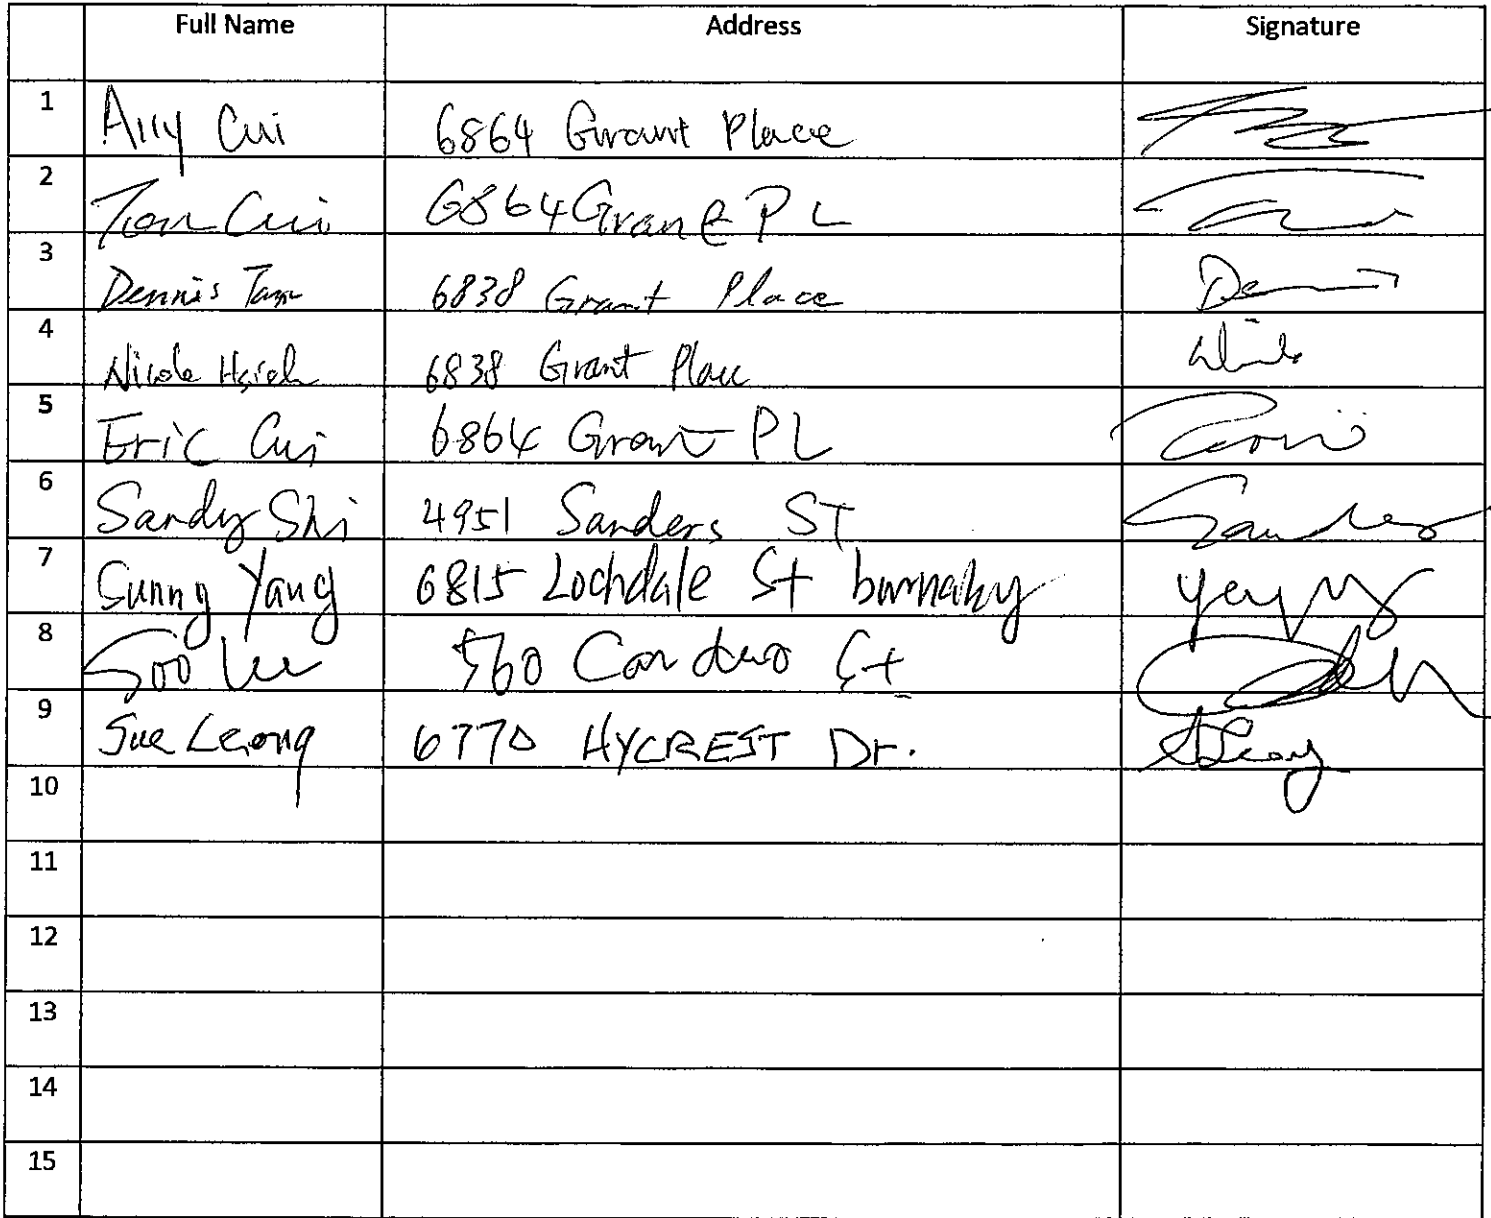 Full Name Address Signature
1 Ally Cui 6864 Grant Place
2 Tom Cui 6864 Grant PL
3 Dennis Tam 6838 Grant Place
4 Nicole Hsieh 6838 Grant Place
5 Eric Cui 6864 Grant PL
6 Sandy Shi 4951 Sanders ST
7 Sunny Yang 6815 Lochdale St burnaby
8 Soo 560 St
9 Sue Leong 6770 HYCREST Dr.
10
11
12
13
14
15